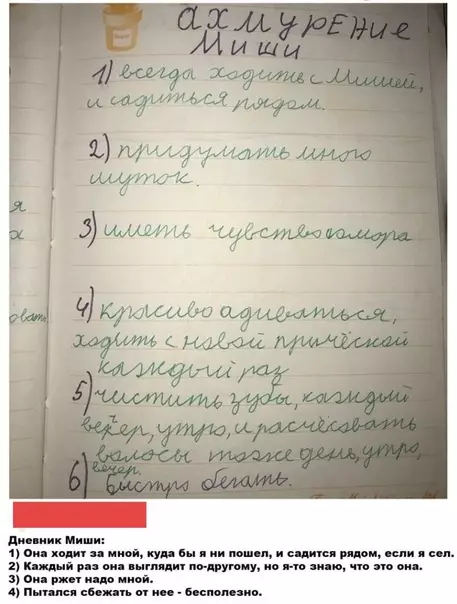 ахмурение
Миши
1) всегда ходить с Мишей,
и садиться рядом.
2) придумать много
шуток.
3) иметь чувство юмора
4) красиво адиваться,
ходить с новой причёской
каждый раз
5) чистить зубы, каждый
вечер, утро, и расчёсовать
волосы тоже день, утро,
вечер.
6) быстро бегать.
я
х
овать
Дневник Миши:
1) Она ходит за мной, куда бы я ни пошел, и садится рядом, если я сел.
2) Каждый раз она выглядит по-другому, но я-то знаю, что это она.
3) Она ржет надо мной.
4) Пытался сбежать от нее - бесполезно.